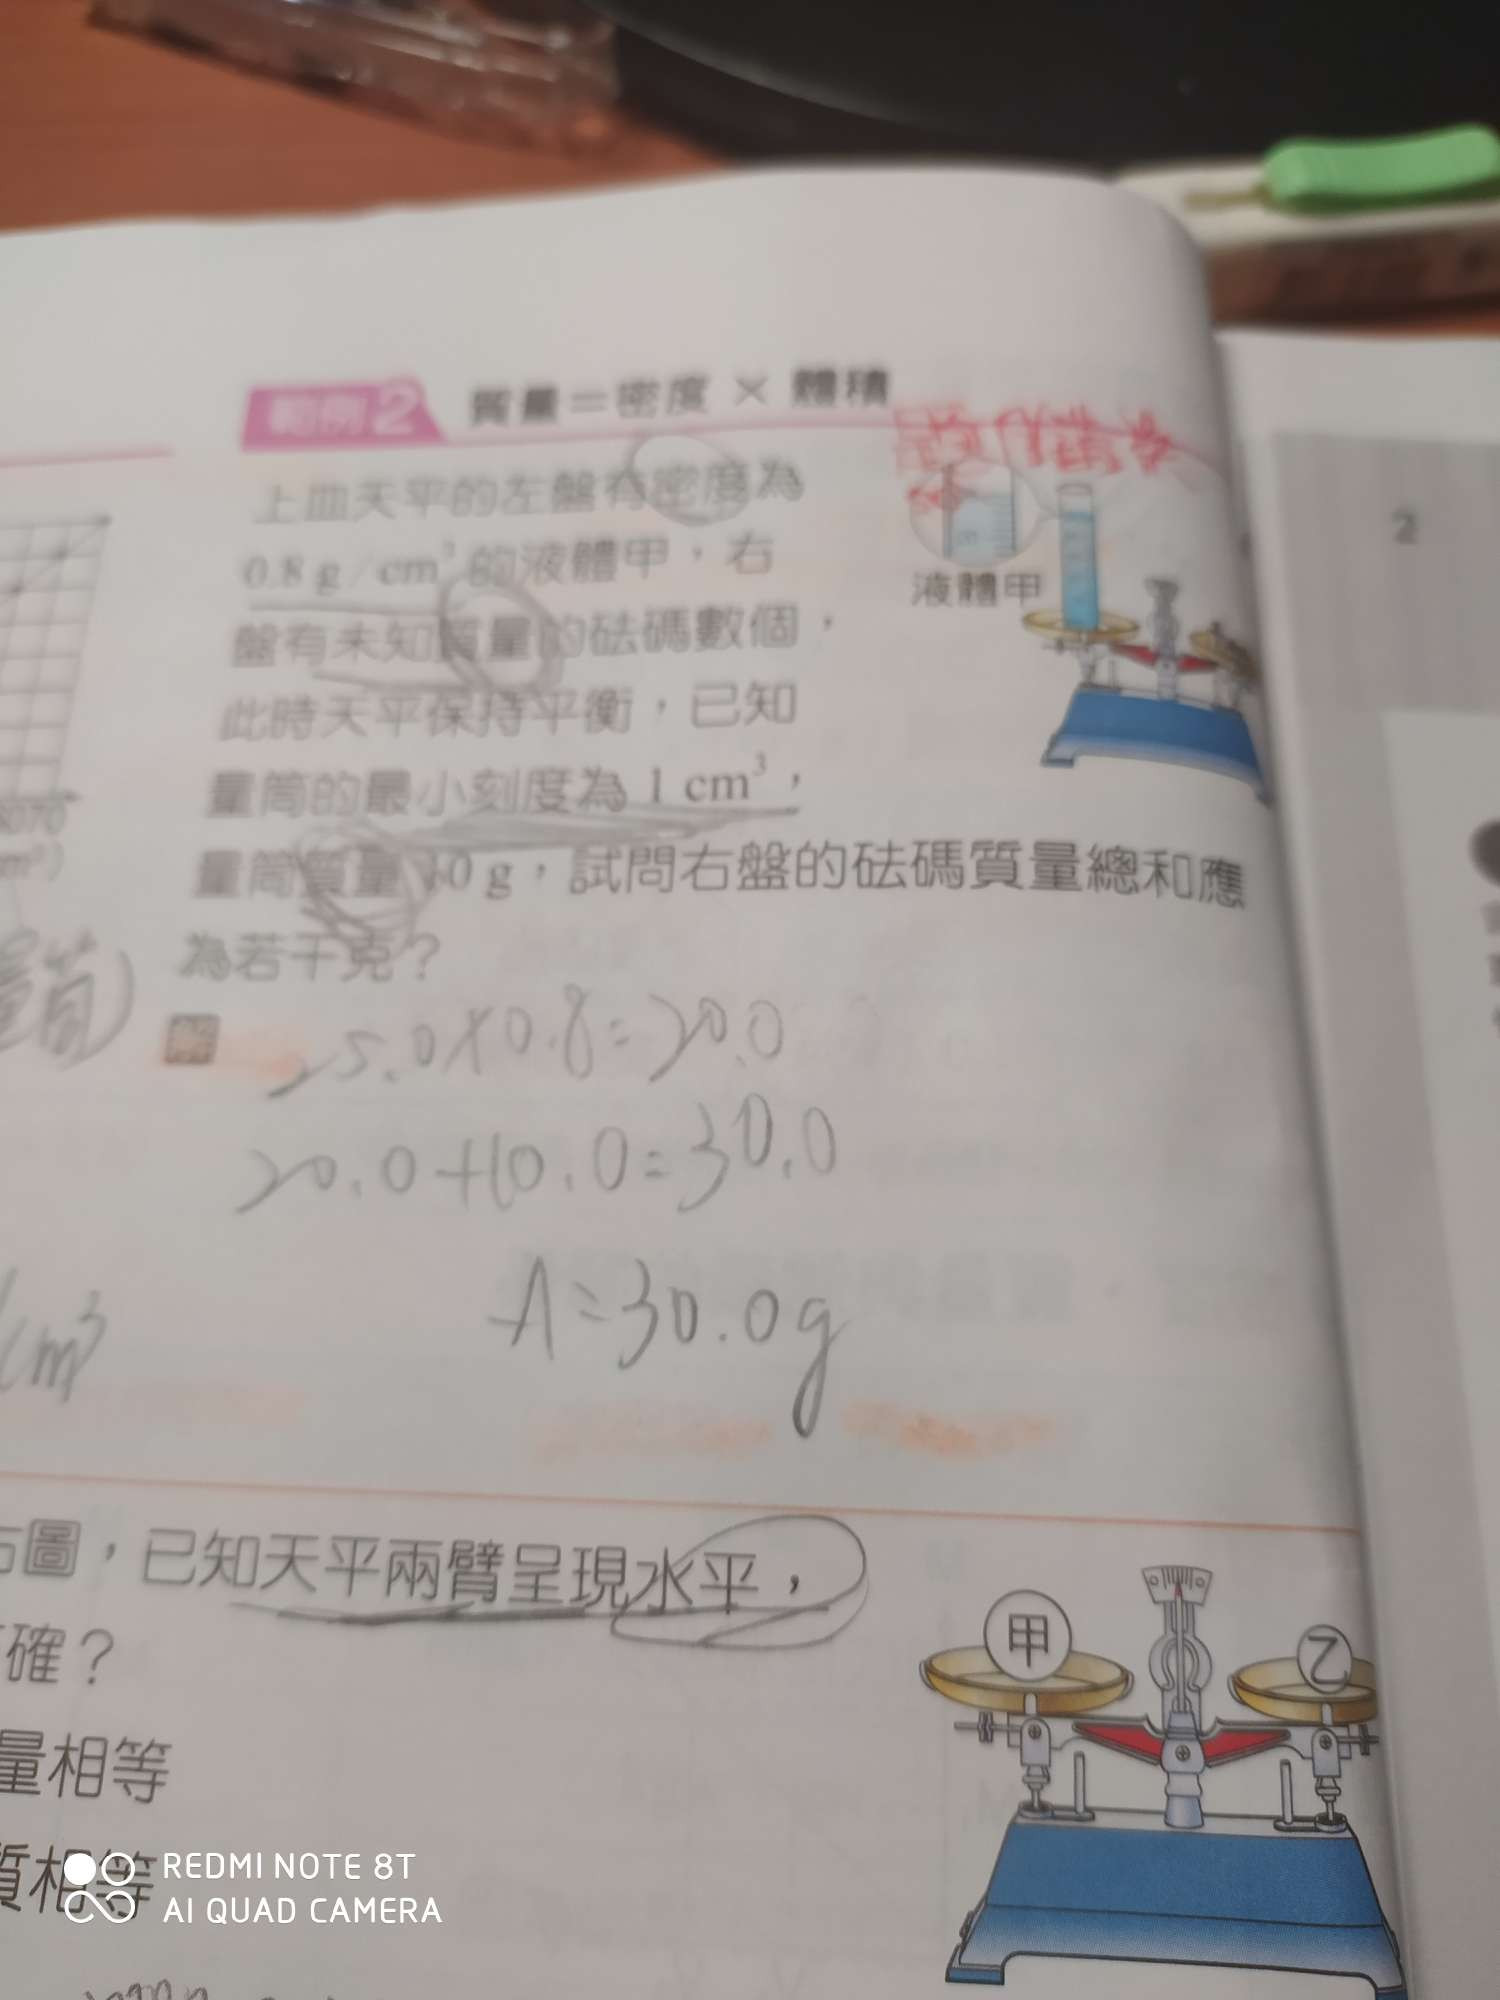 範例2 質量=密度 × 體積
上皿天平的左盤有密度為
0.8 g/cm³ 的液體甲,右
盤有未知質量的砝碼數個,
此時天平保持平衡,已知
量筒的最小刻度為 1 cm³,
量筒質量 10 g,試問右盤的砝碼質量總和應
為若干克?
液體甲
解
25.0×0.8=20.0
20.0+10.0=30.0
A=30.0g
量筒)
cm³
右圖,已知天平兩臂呈現水平,
確?
量相等
質相等
甲
乙
2
REDMI NOTE 8T
AI QUAD CAMERA